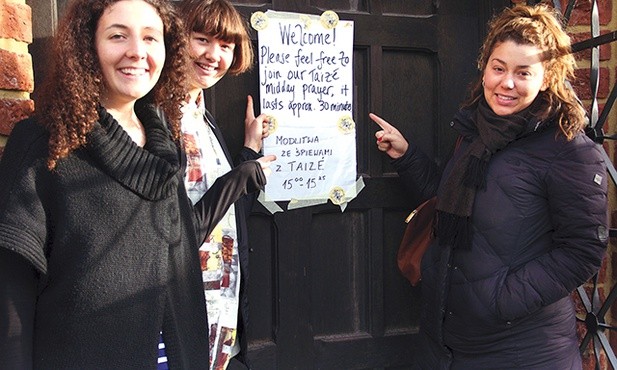 Welcome!
Please feel free to
join our Taizé
midday prayer, it
lasts approx. 30 minutes
MODLITWA
ZE ŚPIEWAMI
Z TAIZÉ
15⁰⁰-15²⁵